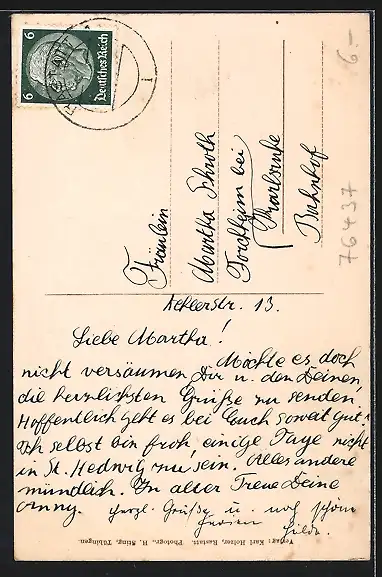 6
6
Deutsches Reich
6.-
76437
Fräulein
Martha Schroth
Forchheim bei
Karlsruhe
Bahnhof
Acherstr. 13.
Liebe Martha!
Möchte es doch
nicht versäumen Dir u. den Deinen,
die herzlichsten Grüße zu senden.
Hoffentlich geht es bei Euch soweit gut!
Ich selbst bin froh, einige Tage nicht
in St. Hedwig zu sein. Alles andere
mündlich. In alter Treue Deine
Anny. Herzl. Grüße u. noch schöne
Hilde.
Verlag: Karl Holzer, Rastatt. Photogr. H. Sting, Tübingen.